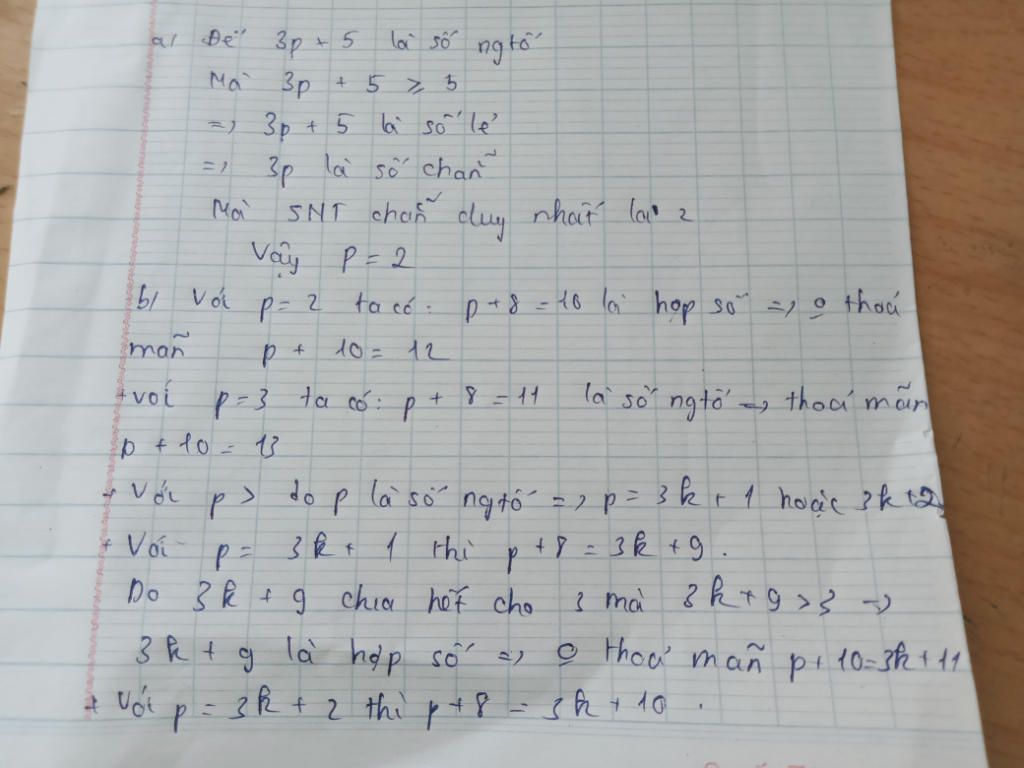 a/ Để 3p + 5 là số ngtố
Mà 3p + 5 ≥ 5
=> 3p + 5 là số lẻ
=> 3p là số chẵn
Mà SNT chẵn duy nhất là 2
Vậy p = 2
b/ Với p = 2 ta có: p + 8 = 10 là hợp số => o thoả
mãn p + 10 = 12
+ với p = 3 ta có: p + 8 = 11 là số ngtố => thoả mãn
p + 10 = 13
+ Với p > do p là số ngtố => p = 3k + 1 hoặc 3k + 2
+ Với p = 3k + 1 thì p + 8 = 3k + 9 .
Do 3k + 9 chia hết cho 3 mà 3k + 9 > 3 =>
3k + 9 là hợp số => o thoả mãn p + 10 = 3k + 11
+ Với p = 3k + 2 thì p + 8 = 3k + 10 .